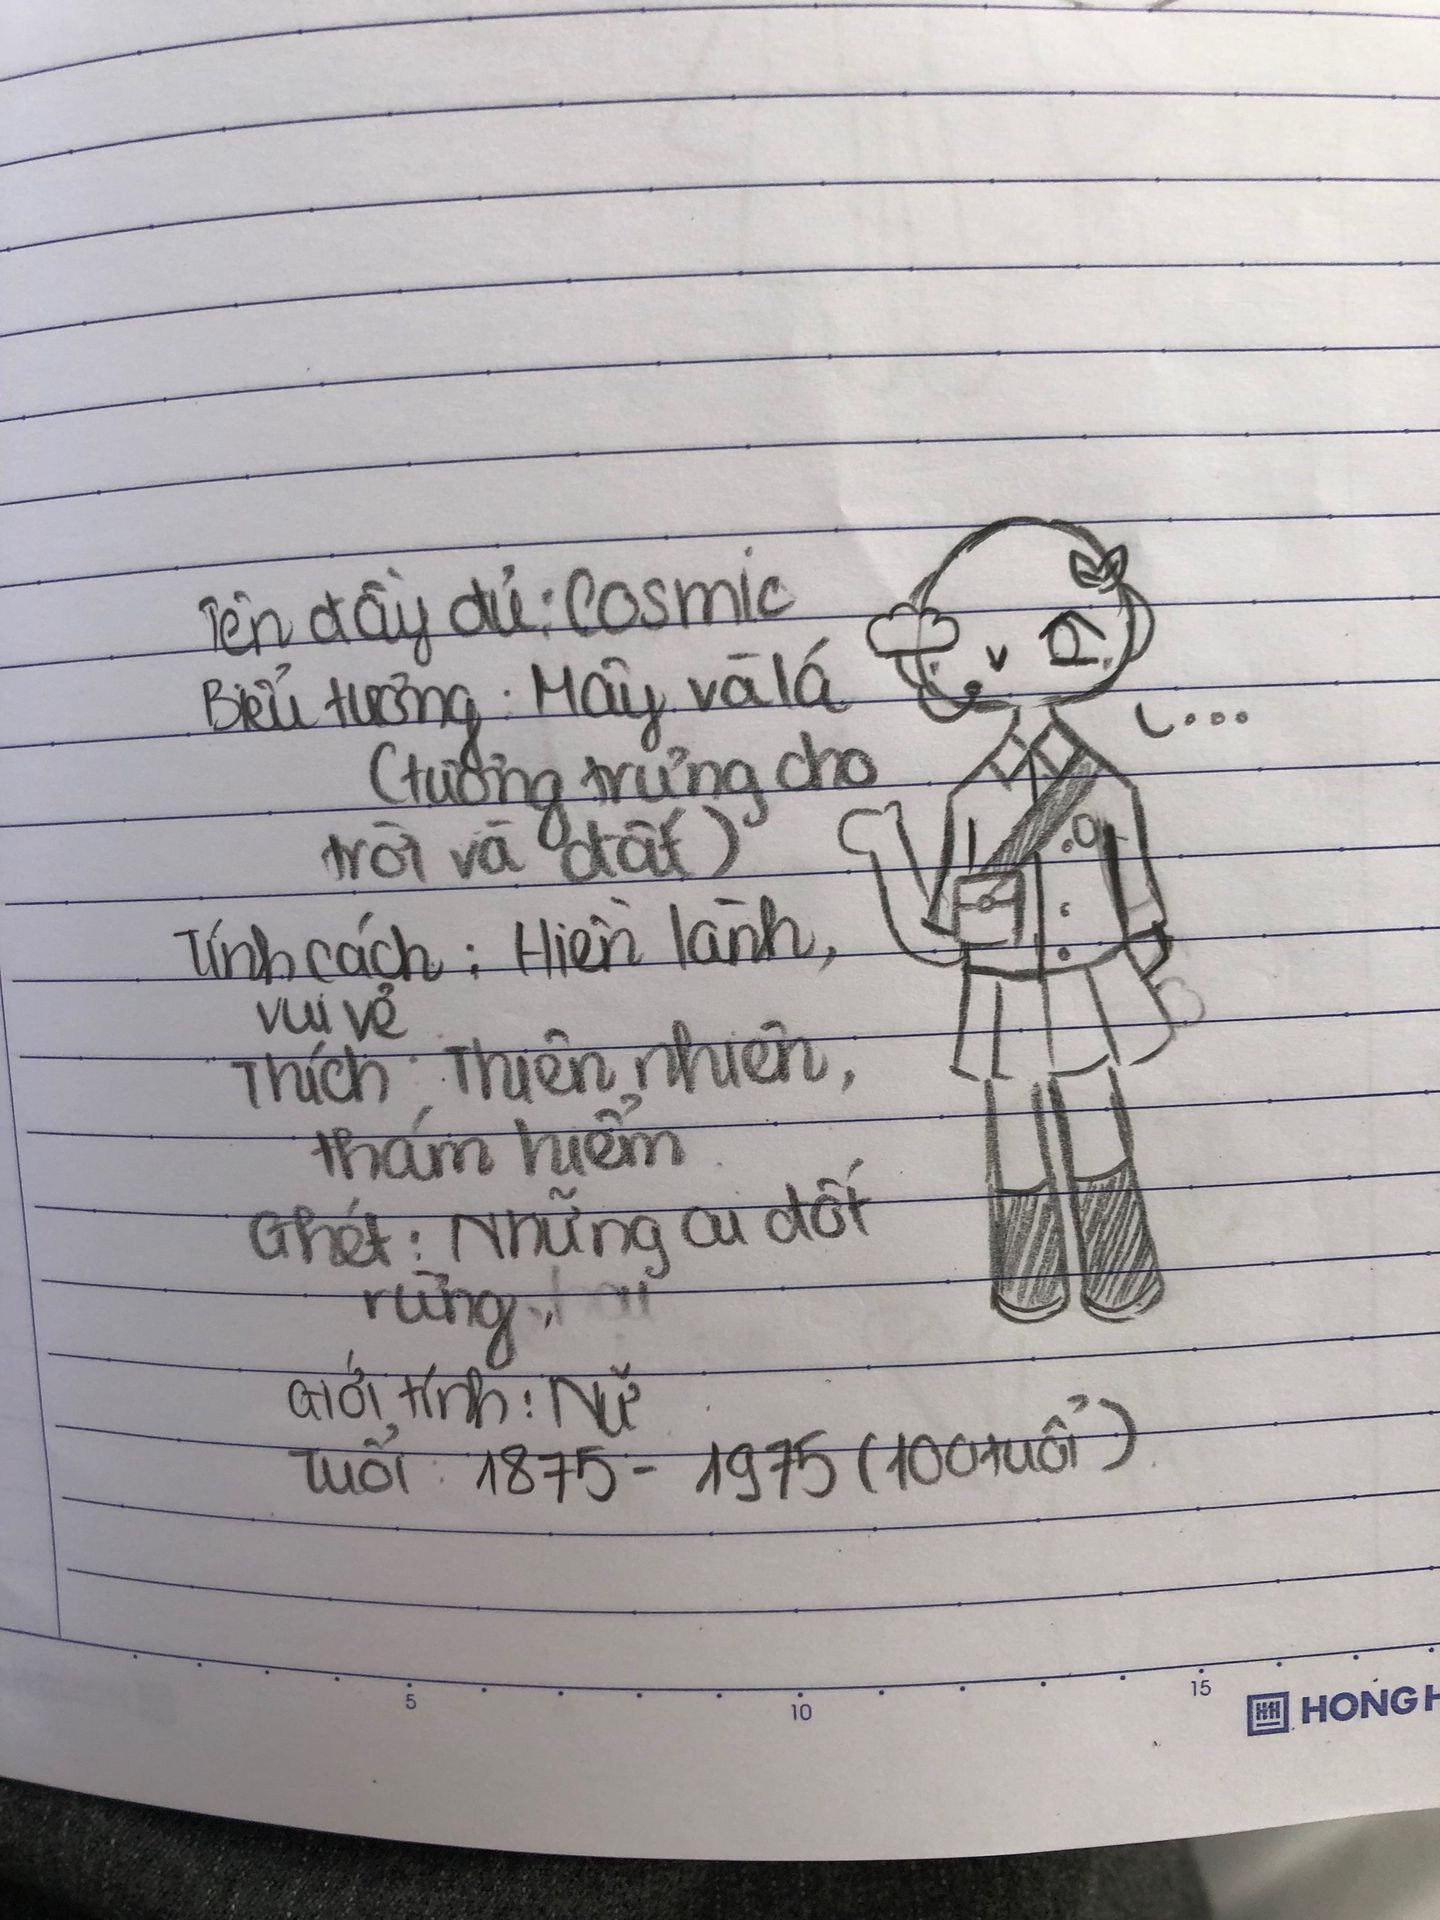 Tên đầy đủ: Cosmic
Biểu tượng: Mây và lá
(tượng trưng cho
trời và đất)
Tính cách: Hiền lành,
vui vẻ
Thích: Thiên nhiên,
thám hiểm
Ghét: Những ai đốt
rừng,
Giới tính: Nữ
Tuổi: 1875 - 1975 (100 tuổi)
5 10 15
HONG H